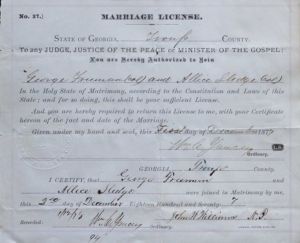 No. 37.) MARRIAGE LICENSE.
STATE OF GEORGIA, Troup COUNTY.
To any JUDGE, JUSTICE OF THE PEACE or MINISTER OF THE GOSPEL:
You are Hereby Authorized to Join
George Freeman (col) and Allice Sledge (col)
In the Holy State of Matrimony, according to the Constitution and Laws of this
State; and for so doing, this shall be your sufficient License.
And you are hereby required to return this License to me, with your Certificate
hereon of the fact and date of the Marriage.
Given under my hand and seal, this First day of December 1877
Wm C Yancey
Ordinary.
GEORGIA, Troup COUNTY.
I CERTIFY, that George Freeman and
Allice Sledge were joined in Matrimony by me
this 2nd day of December Eighteen Hundred and Seventy 7
Recorded: John W Williams N.P.
Wm C Yancey
Ordinary.